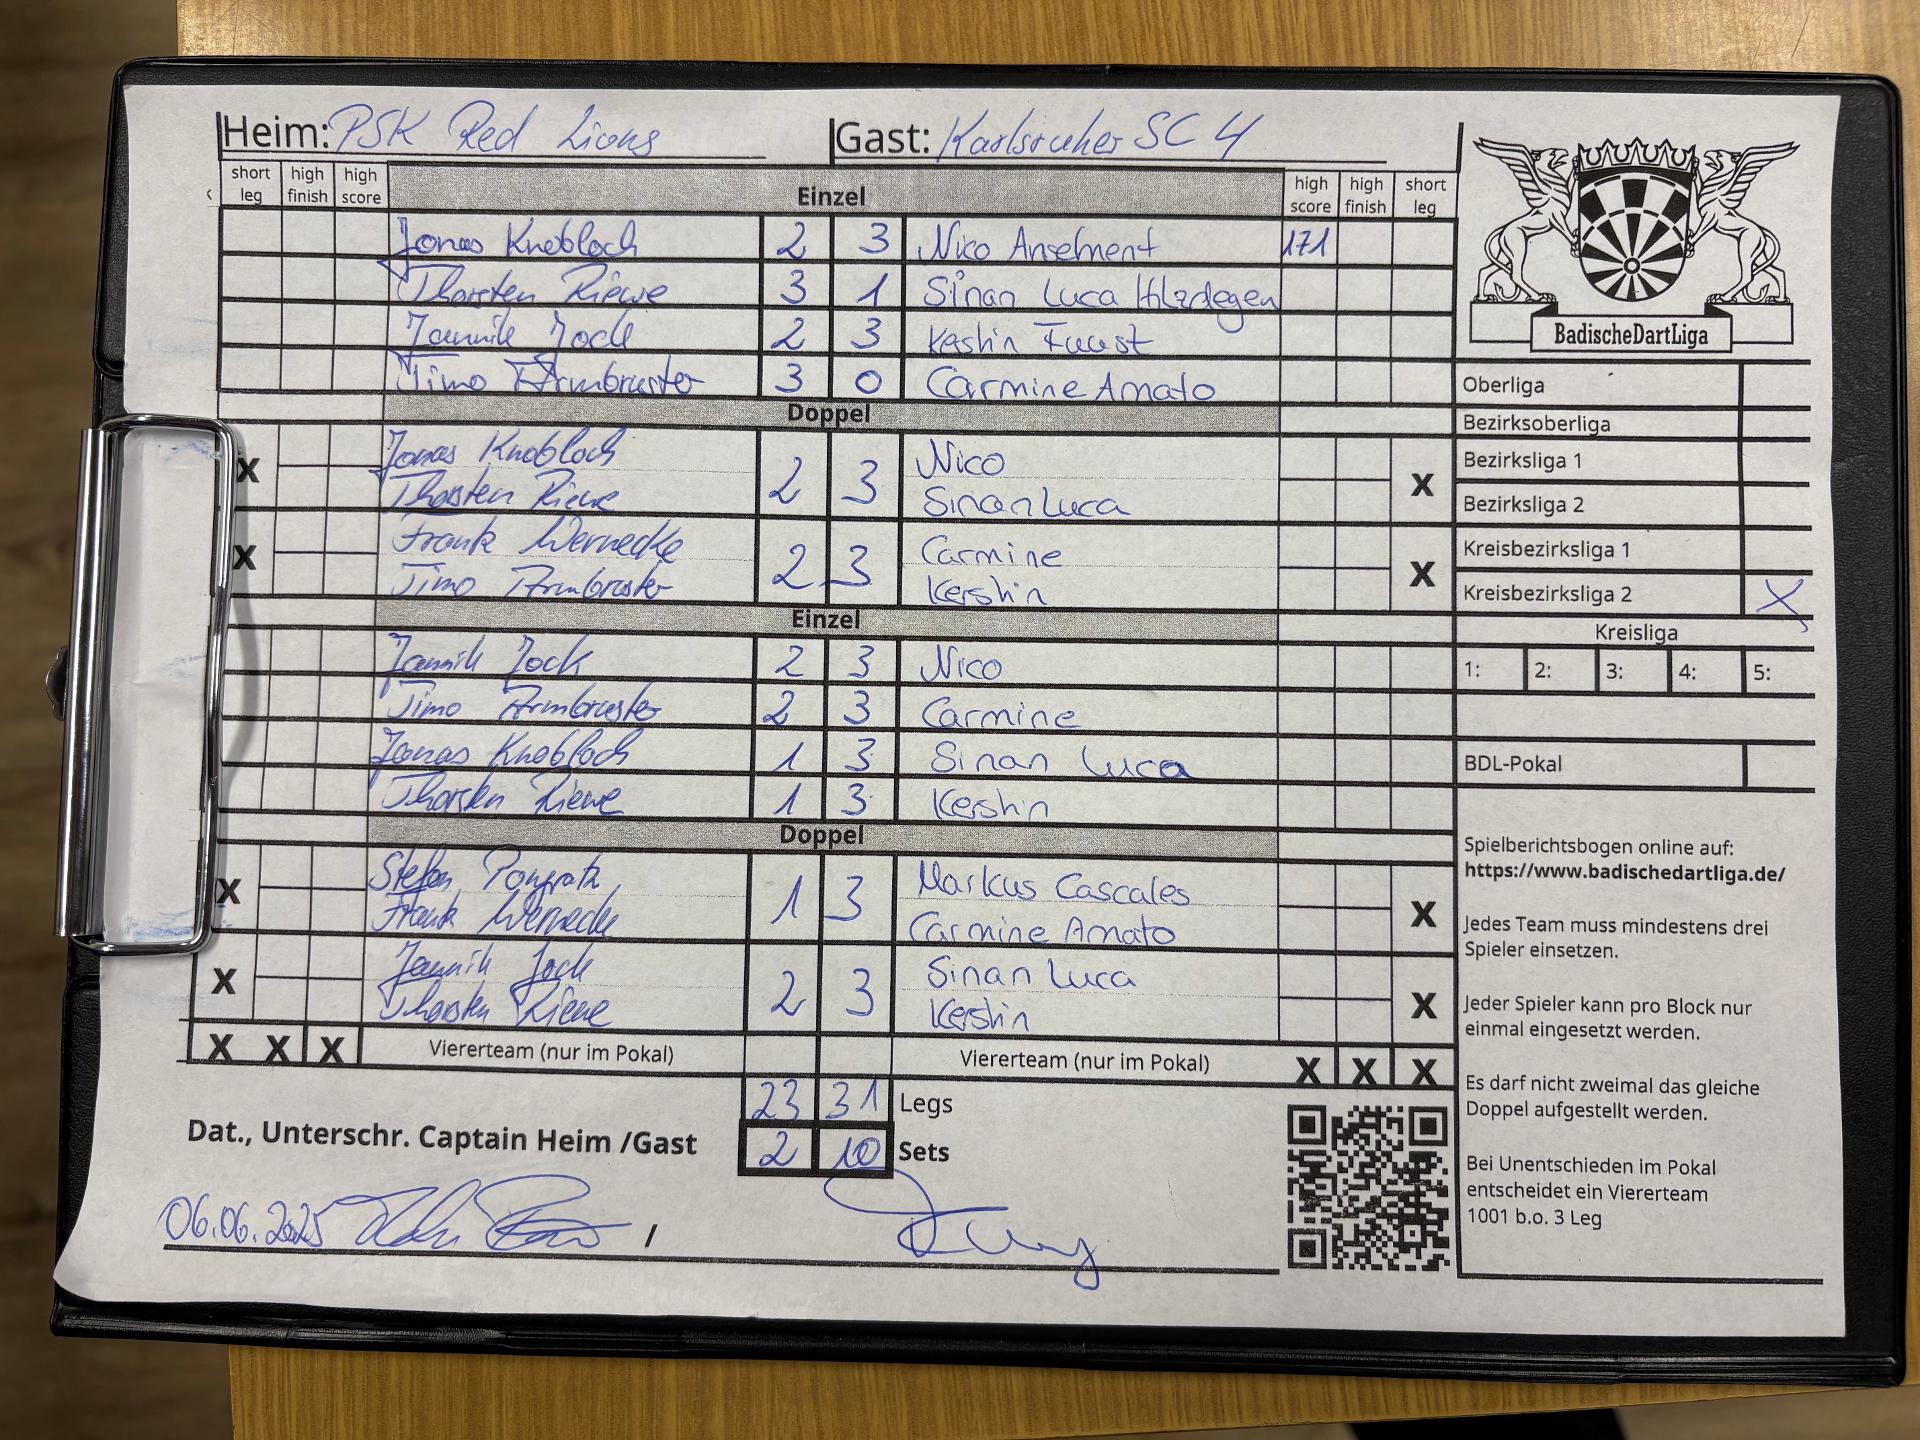 Heim: PSK Red Lions Gast: Karlsruher SC 4
short leg high finish high score Einzel high score high finish short leg
Jonas Knobloch 2 3 Nico Anselment 171
Thorsten Riewe 3 1 Sinan Luca Hildegen
Jannik Jock 2 3 Kerstin Faust
Timo Armbruster 3 0 Carmine Amato
Doppel
Jonas Knobloch Nico
X 2 3 X
Thorsten Riewe Sinan Luca
Frank Wernecke Carmine
X 2 3 X
Timo Armbruster Kershin
Einzel
Jannik Jock 2 3 Nico
Timo Armbruster 2 3 Carmine
Jonas Knobloch 1 3 Sinan Luca
Thorsten Riewe 1 3 Kershin
Doppel
Stefan Pongratz Markus Cascales
X 1 3 X
Frank Wernecke Carmine Amato
Jannik Jock Sinan Luca
X 2 3 X
Thorsten Riewe Kershin
X X X Viererteam (nur im Pokal) Viererteam (nur im Pokal) X X X
23 31 Legs
Dat., Unterschr. Captain Heim /Gast 2 10 Sets
06.06.2025 /
BadischeDartLiga
Oberliga
Bezirksoberliga
Bezirksliga 1
Bezirksliga 2
Kreisbezirksliga 1
Kreisbezirksliga 2 X
Kreisliga
1: 2: 3: 4: 5:
BDL-Pokal
Spielberichtsbogen online auf:
https://www.badischedartliga.de/
Jedes Team muss mindestens drei
Spieler einsetzen.
Jeder Spieler kann pro Block nur
einmal eingesetzt werden.
Es darf nicht zweimal das gleiche
Doppel aufgestellt werden.
Bei Unentschieden im Pokal
entscheidet ein Viererteam
1001 b.o. 3 Leg